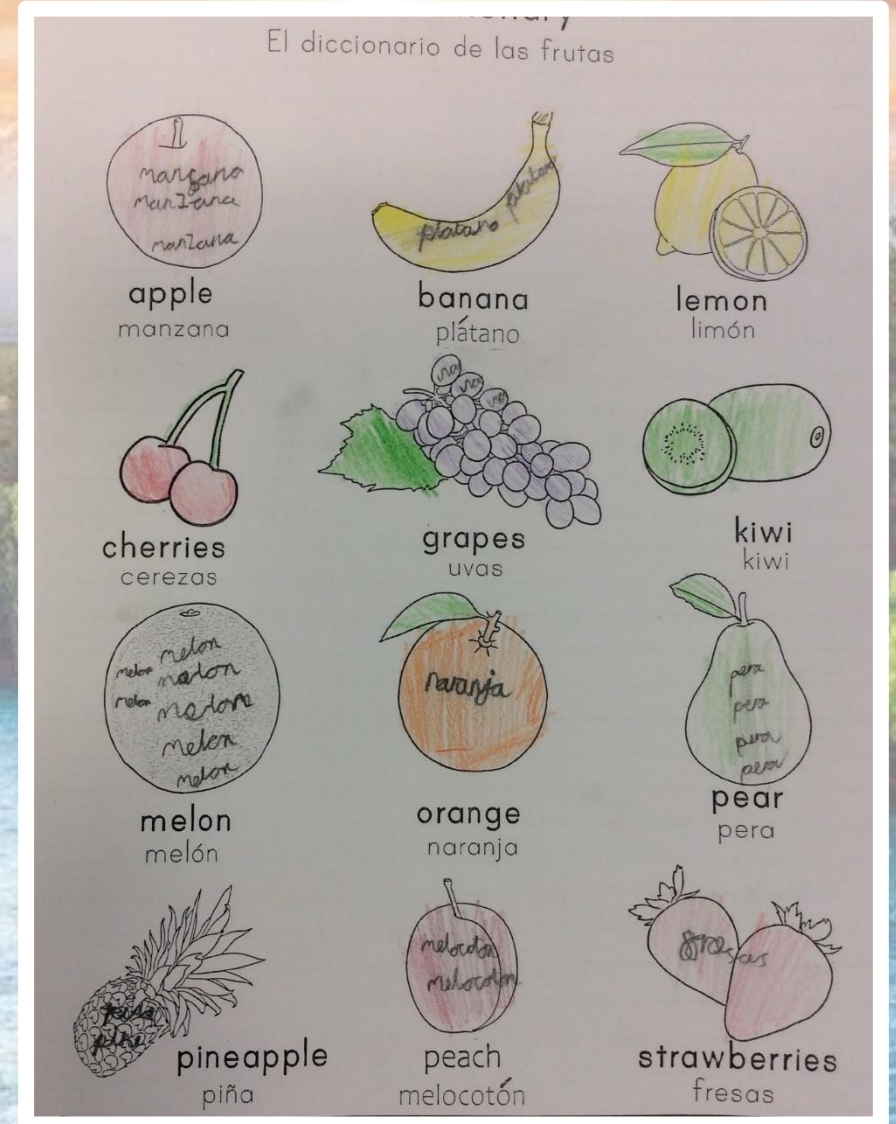 El diccionario de las frutas
manzana
manzana
manzana
apple
manzana
platano
platano
banana
plátano
lemon
limón
cherries
cerezas
uva
uva
uva
grapes
uvas
kiwi
kiwi
melon
melon
melon
melon
melon
melon
melon
melón
naranja
orange
naranja
pera
pera
pera
pera
pear
pera
piña
pineapple
piña
melocoton
melocoton
peach
melocotón
fresas
strawberries
fresas